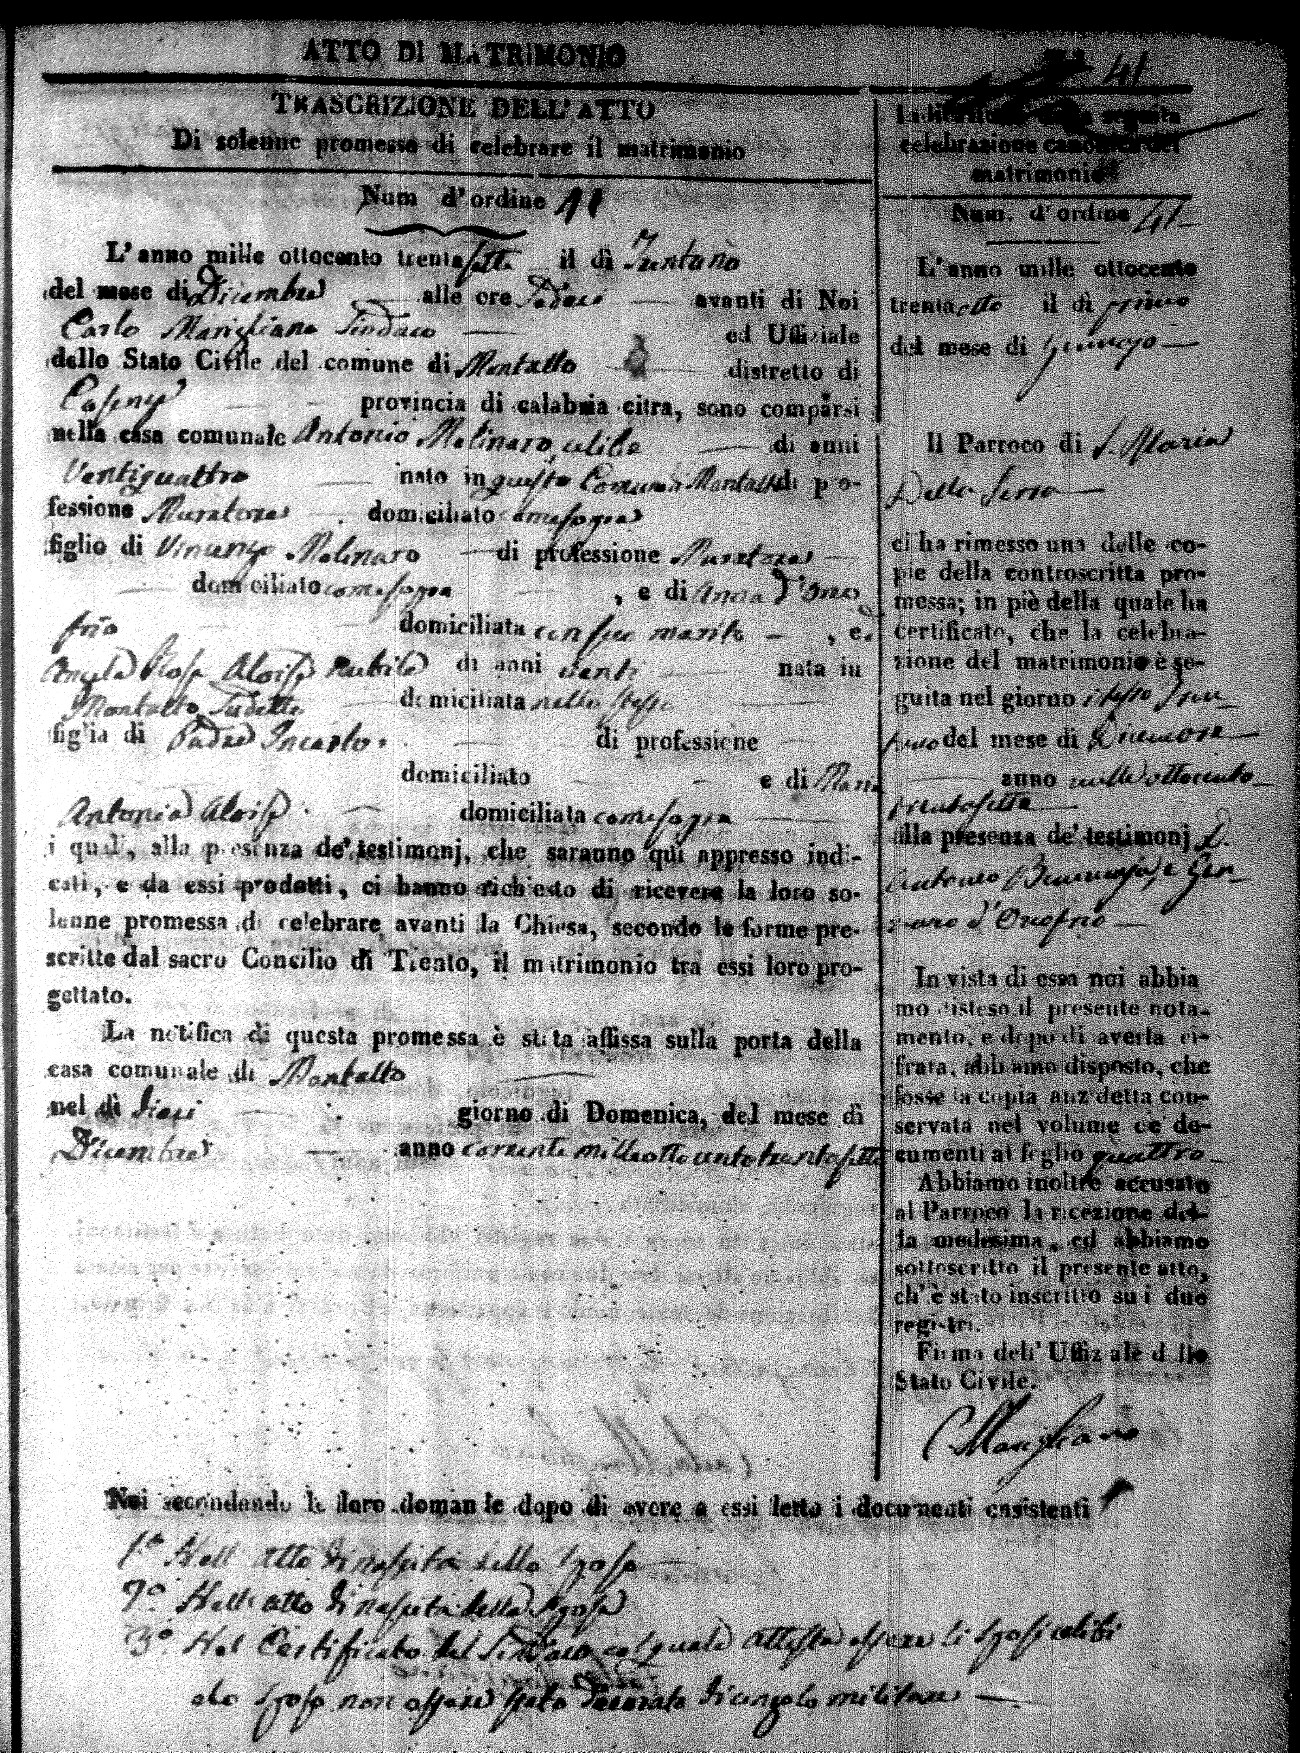 ATTO DI MATRIMONIO
TRASCRIZIONE DELL' ATTO
Di solenne promessa di celebrare il matrimonio
Num d'ordine 41
L'anno mille ottocento trentasette il dì Trentuno
del mese di Dicembre alle ore Sedici avanti di Noi
Carlo Marigliano Sindaco ed Uffiziale
dello Stato Civile del comune di Montalto distretto di
provincia di calabria citra, sono comparsi
nella casa comunale Antonio Molinaro, celibe di anni
Ventiquattro nato in questo Comune Montalto di pro-
fessione Muratore domiciliato come sopra
figlio di Vincenzo Molinaro di professione Muratore
domiciliato come sopra, e di Anna D'Ono
frio domiciliata con suo marito, e
Angela Rosa Aloise Nubile di anni venti nata in
Montalto Sudetto domiciliata nello stesso
figlia di Padre Incerto. di professione
domiciliato e di Maria
Antonia Aloise domiciliata come sopra
i quali, alla presenza de' testimonj, che saranno qui appresso indi-
cati, e da essi prodotti, ci hanno richiesto di ricevere la loro so-
lenne promessa di celebrare avanti la Chiesa, secondo le forme pre-
scritte dal sacro Concilio di Trento, il matrimonio tra essi loro pro-
gettato.
La notifica di questa promessa è stata affissa sulla porta della
casa comunale di Montalto
nel dì dieci giorno di Domenica, del mese di
Dicembre anno corrente milleottocentotrentasette
Noi secondando le loro domande dopo di avere a essi letto i documenti consistenti
1.° Nell' atto di nascita dello Sposo
2.° Nell' atto di nascita della Sposa
3.° Nel Certificato del Sindaco col quale attesta essere li Sposi celibi
e lo Sposo non essere stato
41
celebrazione canonica del
matrimonio
Num. d'ordine 41
L'anno mille ottocento
trentaotto il dì primo
del mese di
Il Parroco di S. Maria
Della Serra
ci ha rimesso una delle co-
pie della controscritta pro-
messa; in piè della quale ha
certificato, che la celebra-
zione del matrimonio è se-
guita nel giorno
del mese di Dicembre
anno mille ottocento
trentasette
alla presenza de' testimonj D.
Antonio e Gen
naro d'Onofrio
In vista di essa noi abbia
mo disteso il presente nota-
mento, e dopo di averla ci-
frata, abbiamo disposto, che
fosse la copia anz'detta con-
servata nel volume de' do-
cumenti al foglio quattro
Abbiamo inoltre accusato
al Parroco la ricezione del-
la medesima, ed abbiamo
sottoscritto il presente atto,
ch'è stato inscritto su i due
registri.
Firma dell' Uffiziale dello
Stato Civile.
C. Marigliano